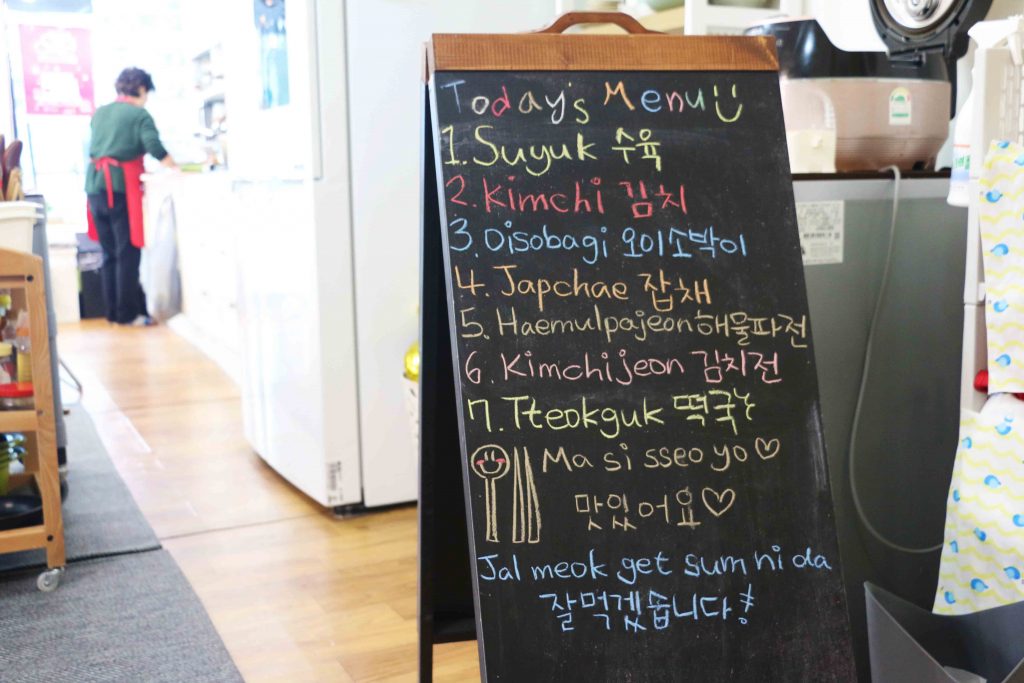 Today's Menu
1. Suyuk 수육
2. Kimchi 김치
3. Oisobagi 오이소박이
4. Japchae 잡채
5. Haemulpajeon 해물파전
6. Kimchijeon 김치전
7. Tteokguk 떡국
Ma si sseo yo♡
맛있어요♡
Jal meok get sum ni da
잘먹겠습니다!